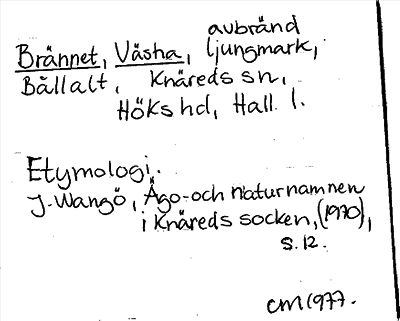 Brännet, Västra, avbränd
ljungmark,
Bållalt, Knäreds sn,
Höks hd, Hall. l.
Etymologi.
J. Wangö, Ägo- och naturnamnen
i Knäreds socken, (1970),
s. 12.
CM 1977.